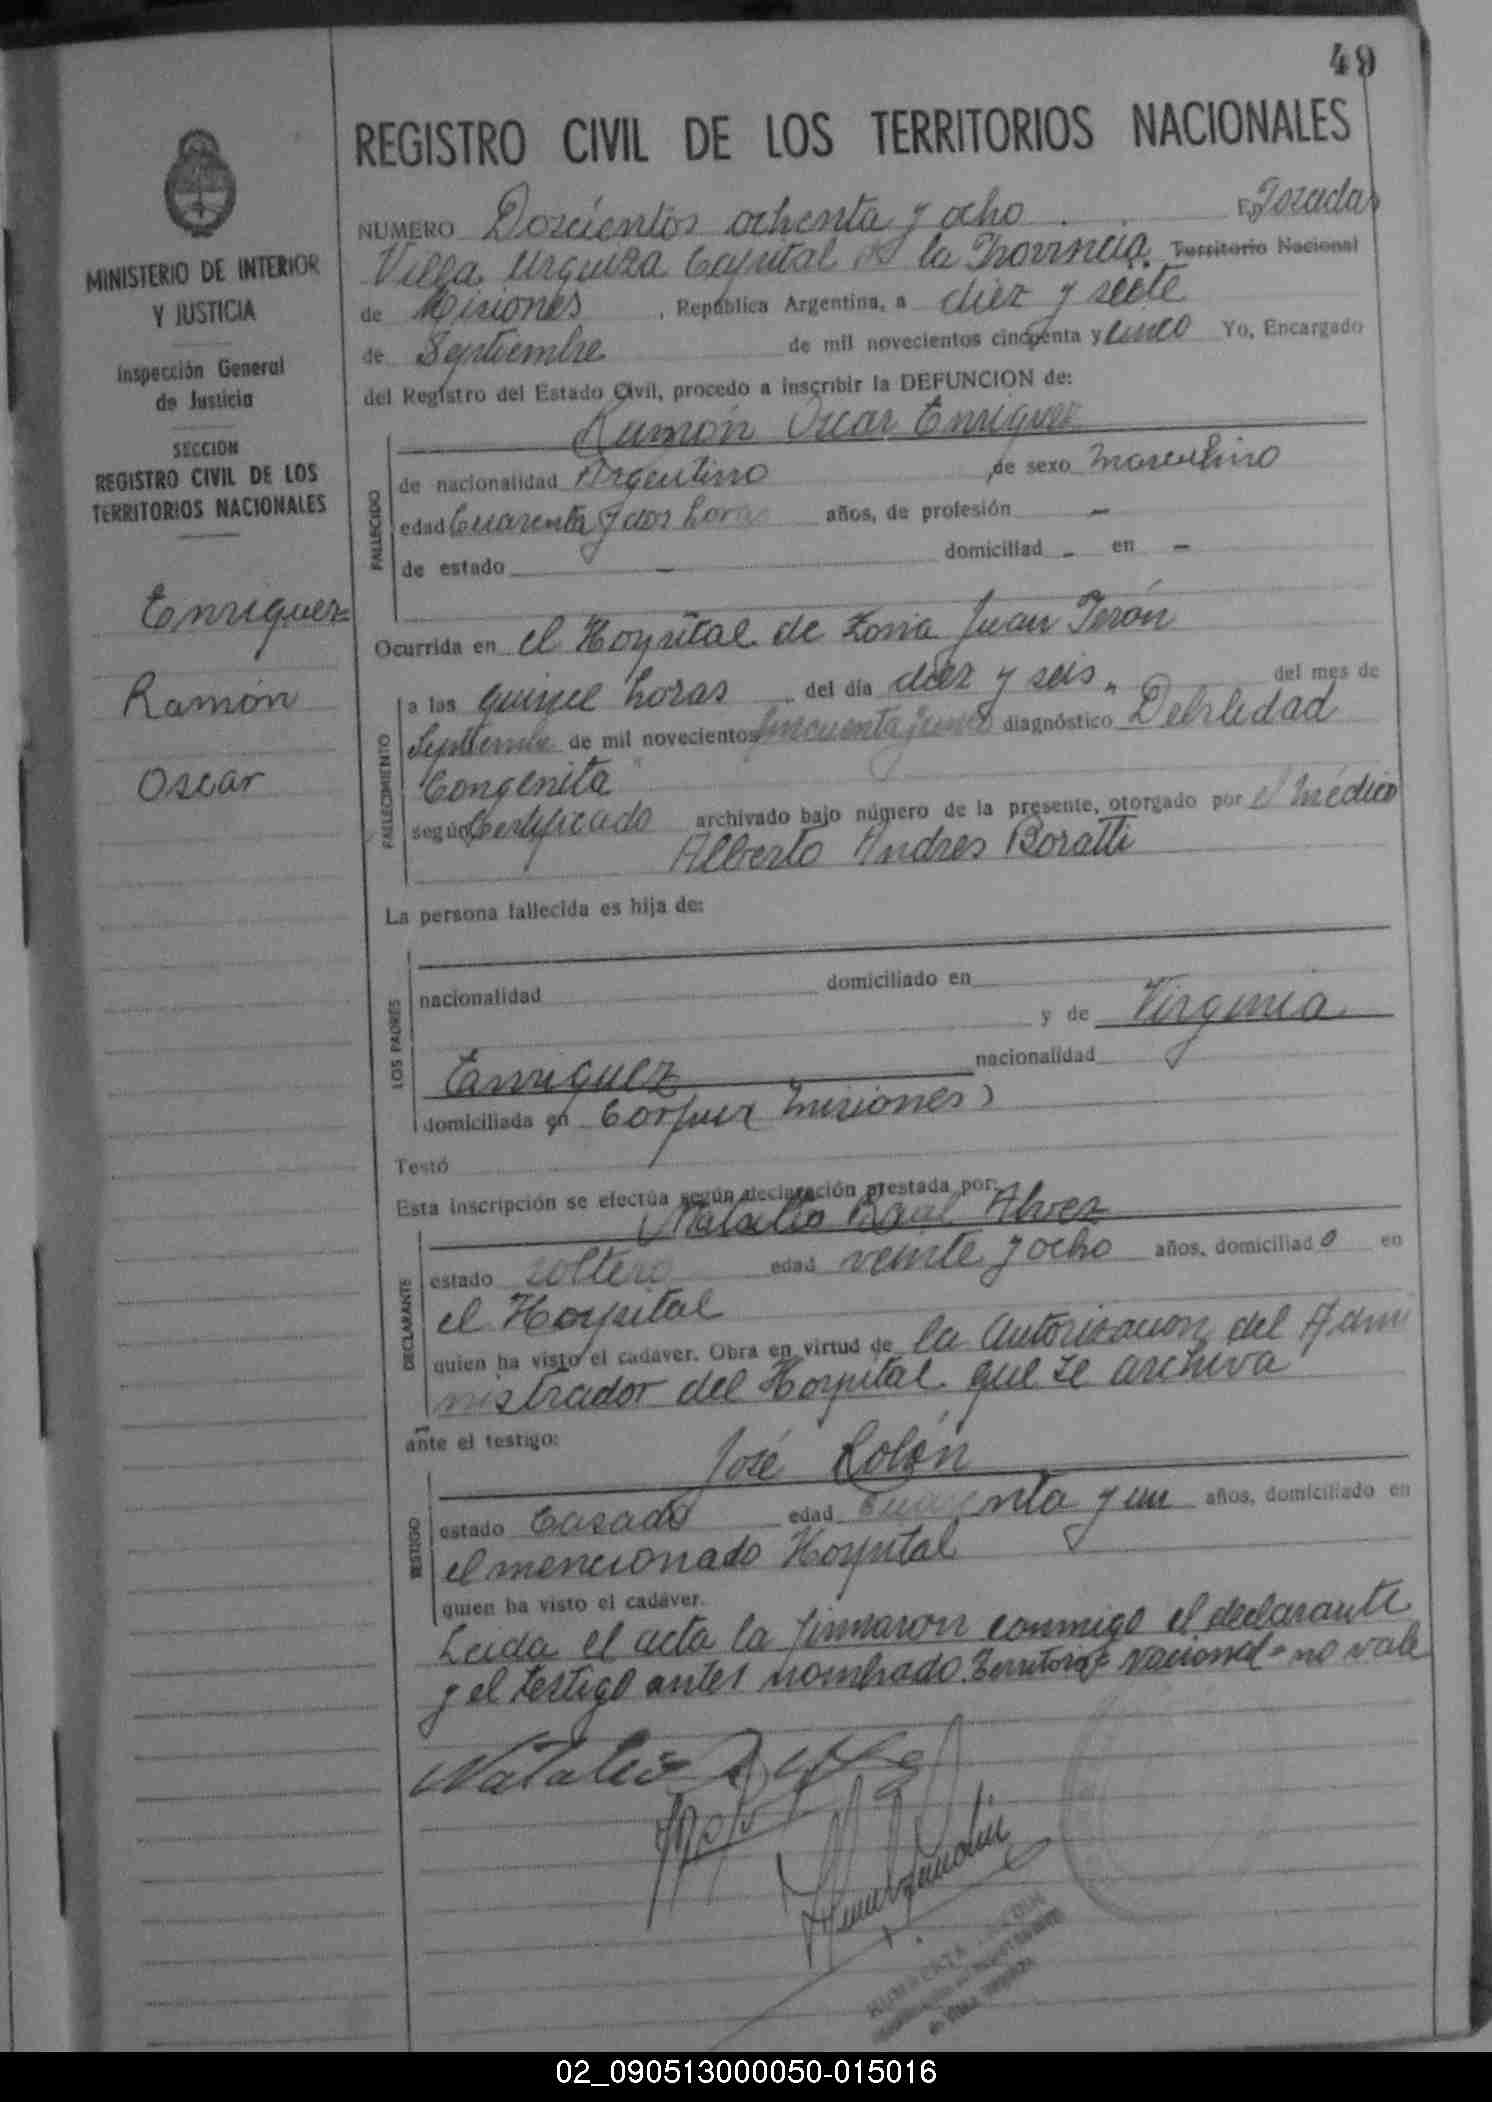 49
REGISTRO CIVIL DE LOS TERRITORIOS NACIONALES
MINISTERIO DE INTERIOR
Y JUSTICIA
Inspección General
de Justicia
SECCION
REGISTRO CIVIL DE LOS
TERRITORIOS NACIONALES
Enriquez
Ramón
Oscar
NUMERO Doscientos ochenta y ocho En Posadas
Villa Urquiza Capital de la Provincia Territorio Nacional
de Misiones, República Argentina, a diez y siete
de Septiembre de mil novecientos cincuenta y cinco Yo, Encargado
del Registro del Estado Civil, procedo a inscribir la DEFUNCION de:
Ramón Oscar Enriquez
FALLECIDO
de nacionalidad Argentino de sexo masculino
edad Cuarenta y dos horas años, de profesión -
de estado - domiciliad - en -
Ocurrida en el Hospital de Zona Juan Perón
FALLECIMIENTO
a las quince horas del día diez y seis del mes de
Septiembre de mil novecientos cincuenta y cinco diagnóstico Debilidad
Congenita
según Certificado archivado bajo número de la presente, otorgado por el médico
Alberto Andres Boratti
La persona fallecida es hija de:
LOS PADRES
nacionalidad domiciliado en
y de Virginia
Enriquez nacionalidad
domiciliada en Corpus Misiones)
Testó
Esta inscripción se efectúa según declaración prestada por:
Natalio Alvez
DECLARANTE
estado soltero edad veinte y ocho años, domiciliado en
el Hospital
quien ha visto el cadáver. Obra en virtud de la Autorizacion del Admi
nistrador del Hospital que se archiva
ante el testigo:
José Rolón
TESTIGO
estado Casado edad Cuarenta y un años, domiciliado en
el mencionado Hospital
quien ha visto el cadáver.
Leida el acta la firmaron conmigo el declarante
y el testigo antes nombrado. Territorio Nacional - no vale
Natalio
02_090513000050-015016